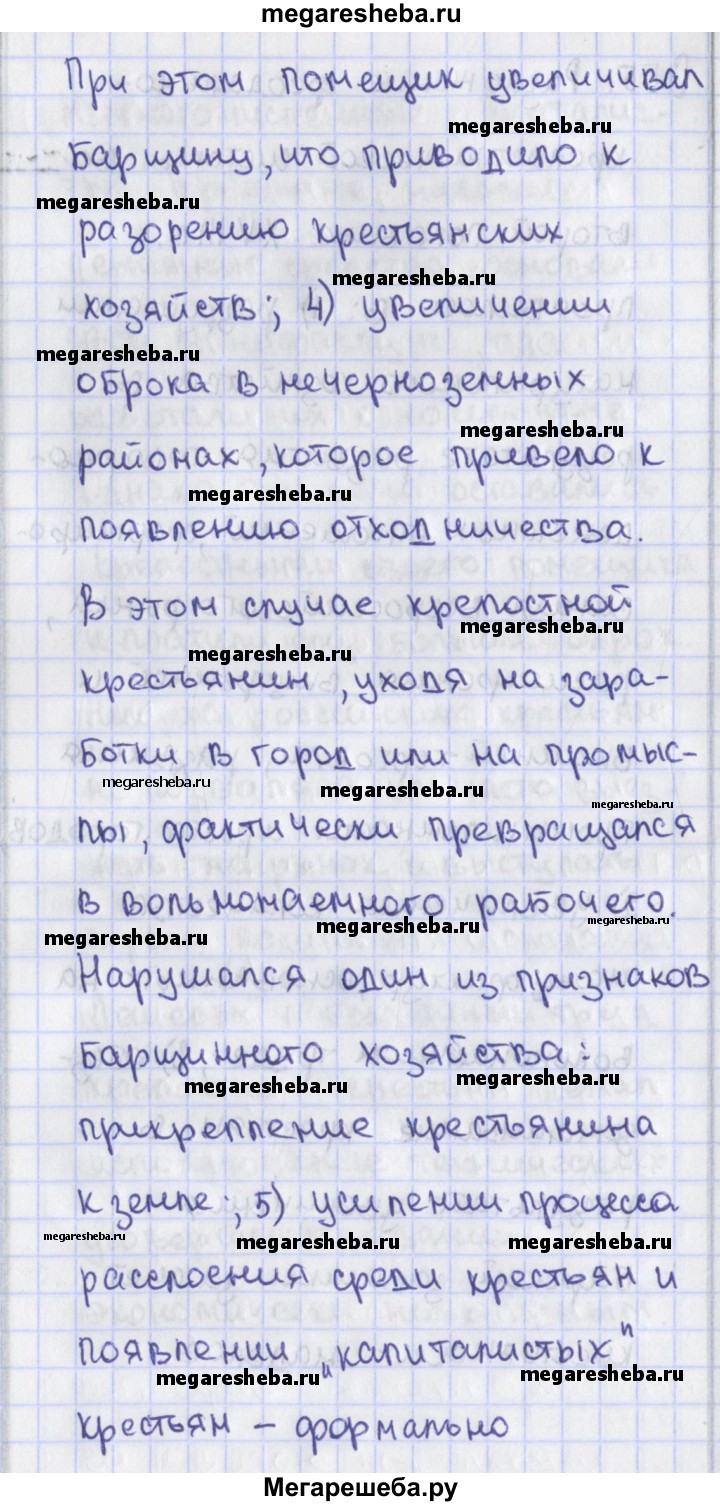 megaresheba.ru
При этом помещик увеличивал
megaresheba.ru
барщину, что приводило к
megaresheba.ru
разорению крестьянских
megaresheba.ru
хозяйств; 4) увеличении
megaresheba.ru
оброка в нечерноземных
megaresheba.ru
районах, которое привело к
megaresheba.ru
появлению отходничества.
В этом случае крепостной
megaresheba.ru
megaresheba.ru
крестьянин, уходя на зара-
ботки в город или на промыс-
megaresheba.ru
megaresheba.ru
megaresheba.ru
лы, фактически превращался
в вольнонаемного рабочего.
megaresheba.ru
megaresheba.ru
Нарушался один из признаков
барщинного хозяйства:
megaresheba.ru
megaresheba.ru
прикрепление крестьянина
к земле; 5) усилении процесса
megaresheba.ru
megaresheba.ru
megaresheba.ru
расслоения среди крестьян и
появлении "капиталистых"
megaresheba.ru
megaresheba.ru
крестьян – формально
Мегарешеба.ру